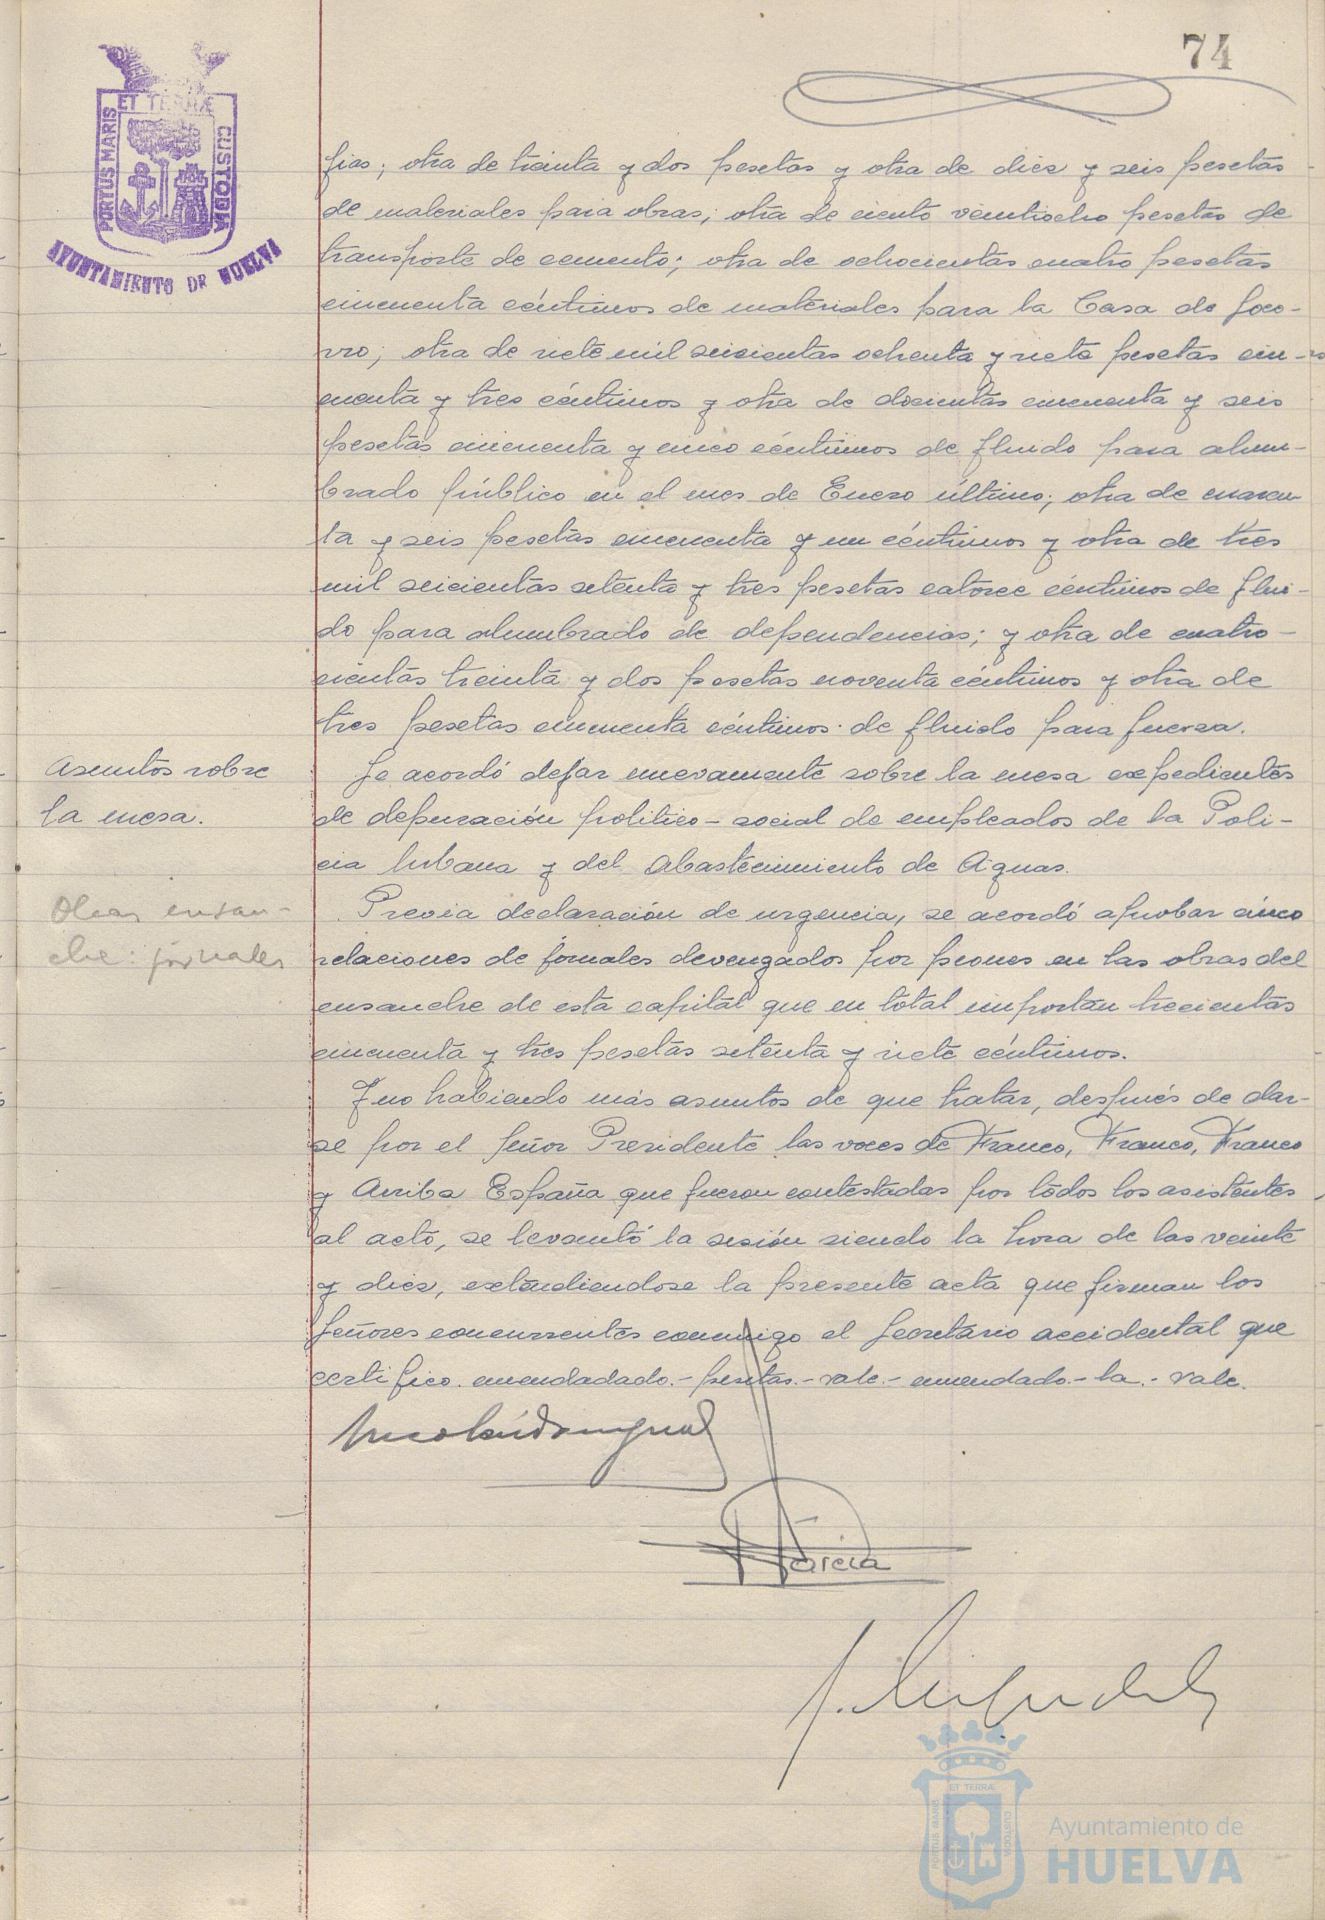 74
PORTUS MARIS ET TERRÆ CUSTODIA
AYUNTAMIENTO DE HUELVA
fias; otra de treinta y dos pesetas y otra de diez y seis pesetas
de materiales para obras; otra de ciento veintiocho pesetas de
transporte de cemento; otra de ochocientas cuatro pesetas
cincuenta céntimos de materiales para la Casa de Soco-
rro; otra de siete mil seiscientas ochenta y siete pesetas cin-
cuenta y tres céntimos y otra de docientas cincuenta y seis
pesetas cincuenta y cinco céntimos de fluido para alum-
brado público en el mes de Enero último; otra de cuaren-
ta y seis pesetas cincuenta y un céntimos y otra de tres
mil seicientas setenta y tres pesetas catorce céntimos de flui-
do para alumbrado de dependencias; y otra de cuatro-
cientas treinta y dos pesetas noventa céntimos y otra de
tres pesetas cincuenta céntimos de fluido para fuerza.
Asuntos sobre
la mesa.
Se acordó dejar nuevamente sobre la mesa expedientes
de depuración politico-social de empleados de la Poli-
cia Urbana y del Abastecimiento de Aguas.
Obras ensan-
che: jornales
Previa declaración de urgencia, se acordó aprobar cinco
relaciones de jornales devengados por peones en las obras del
ensanche de esta capital que en total importan trecientas
cincuenta y tres pesetas setenta y siete céntimos.
Y no habiendo más asuntos de que tratar, después de dar-
se por el Señor Presidente las voces de Franco, Franco, Franco
y Arriba España que fueron contestadas por todos los asistentes
al acto, se levantó la sesión siendo la hora de las veinte
y diez, extendiendose la presente acta que firman los
Señores concurrentes conmigo el Secretario accidental que
certifico. enmendado.- pesetas.- vale.- enmendado.- la.- vale.
García
ET TERRÆ
PORTUS MARIS
CUSTODIA
Ayuntamiento de
HUELVA